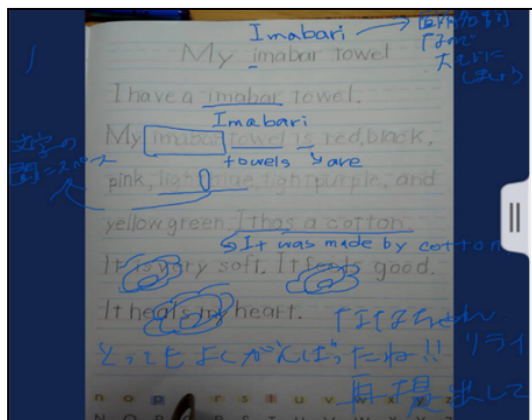 Imabari → 固有名詞
なので
大文字に
しましょう
My imabar towel
I have a imabar towel.
Imabari
My imabar towel is red, black,
towels → are
文字の
間=スペース
pink, light blue, lightpurple, and
yellow green. It has a cotton
It was made by cotton
It is very soft. It feels good.
It heals my heart.
とってもよくがんばったね!!
リライト
再提出して
n o p r s t u v w x y z